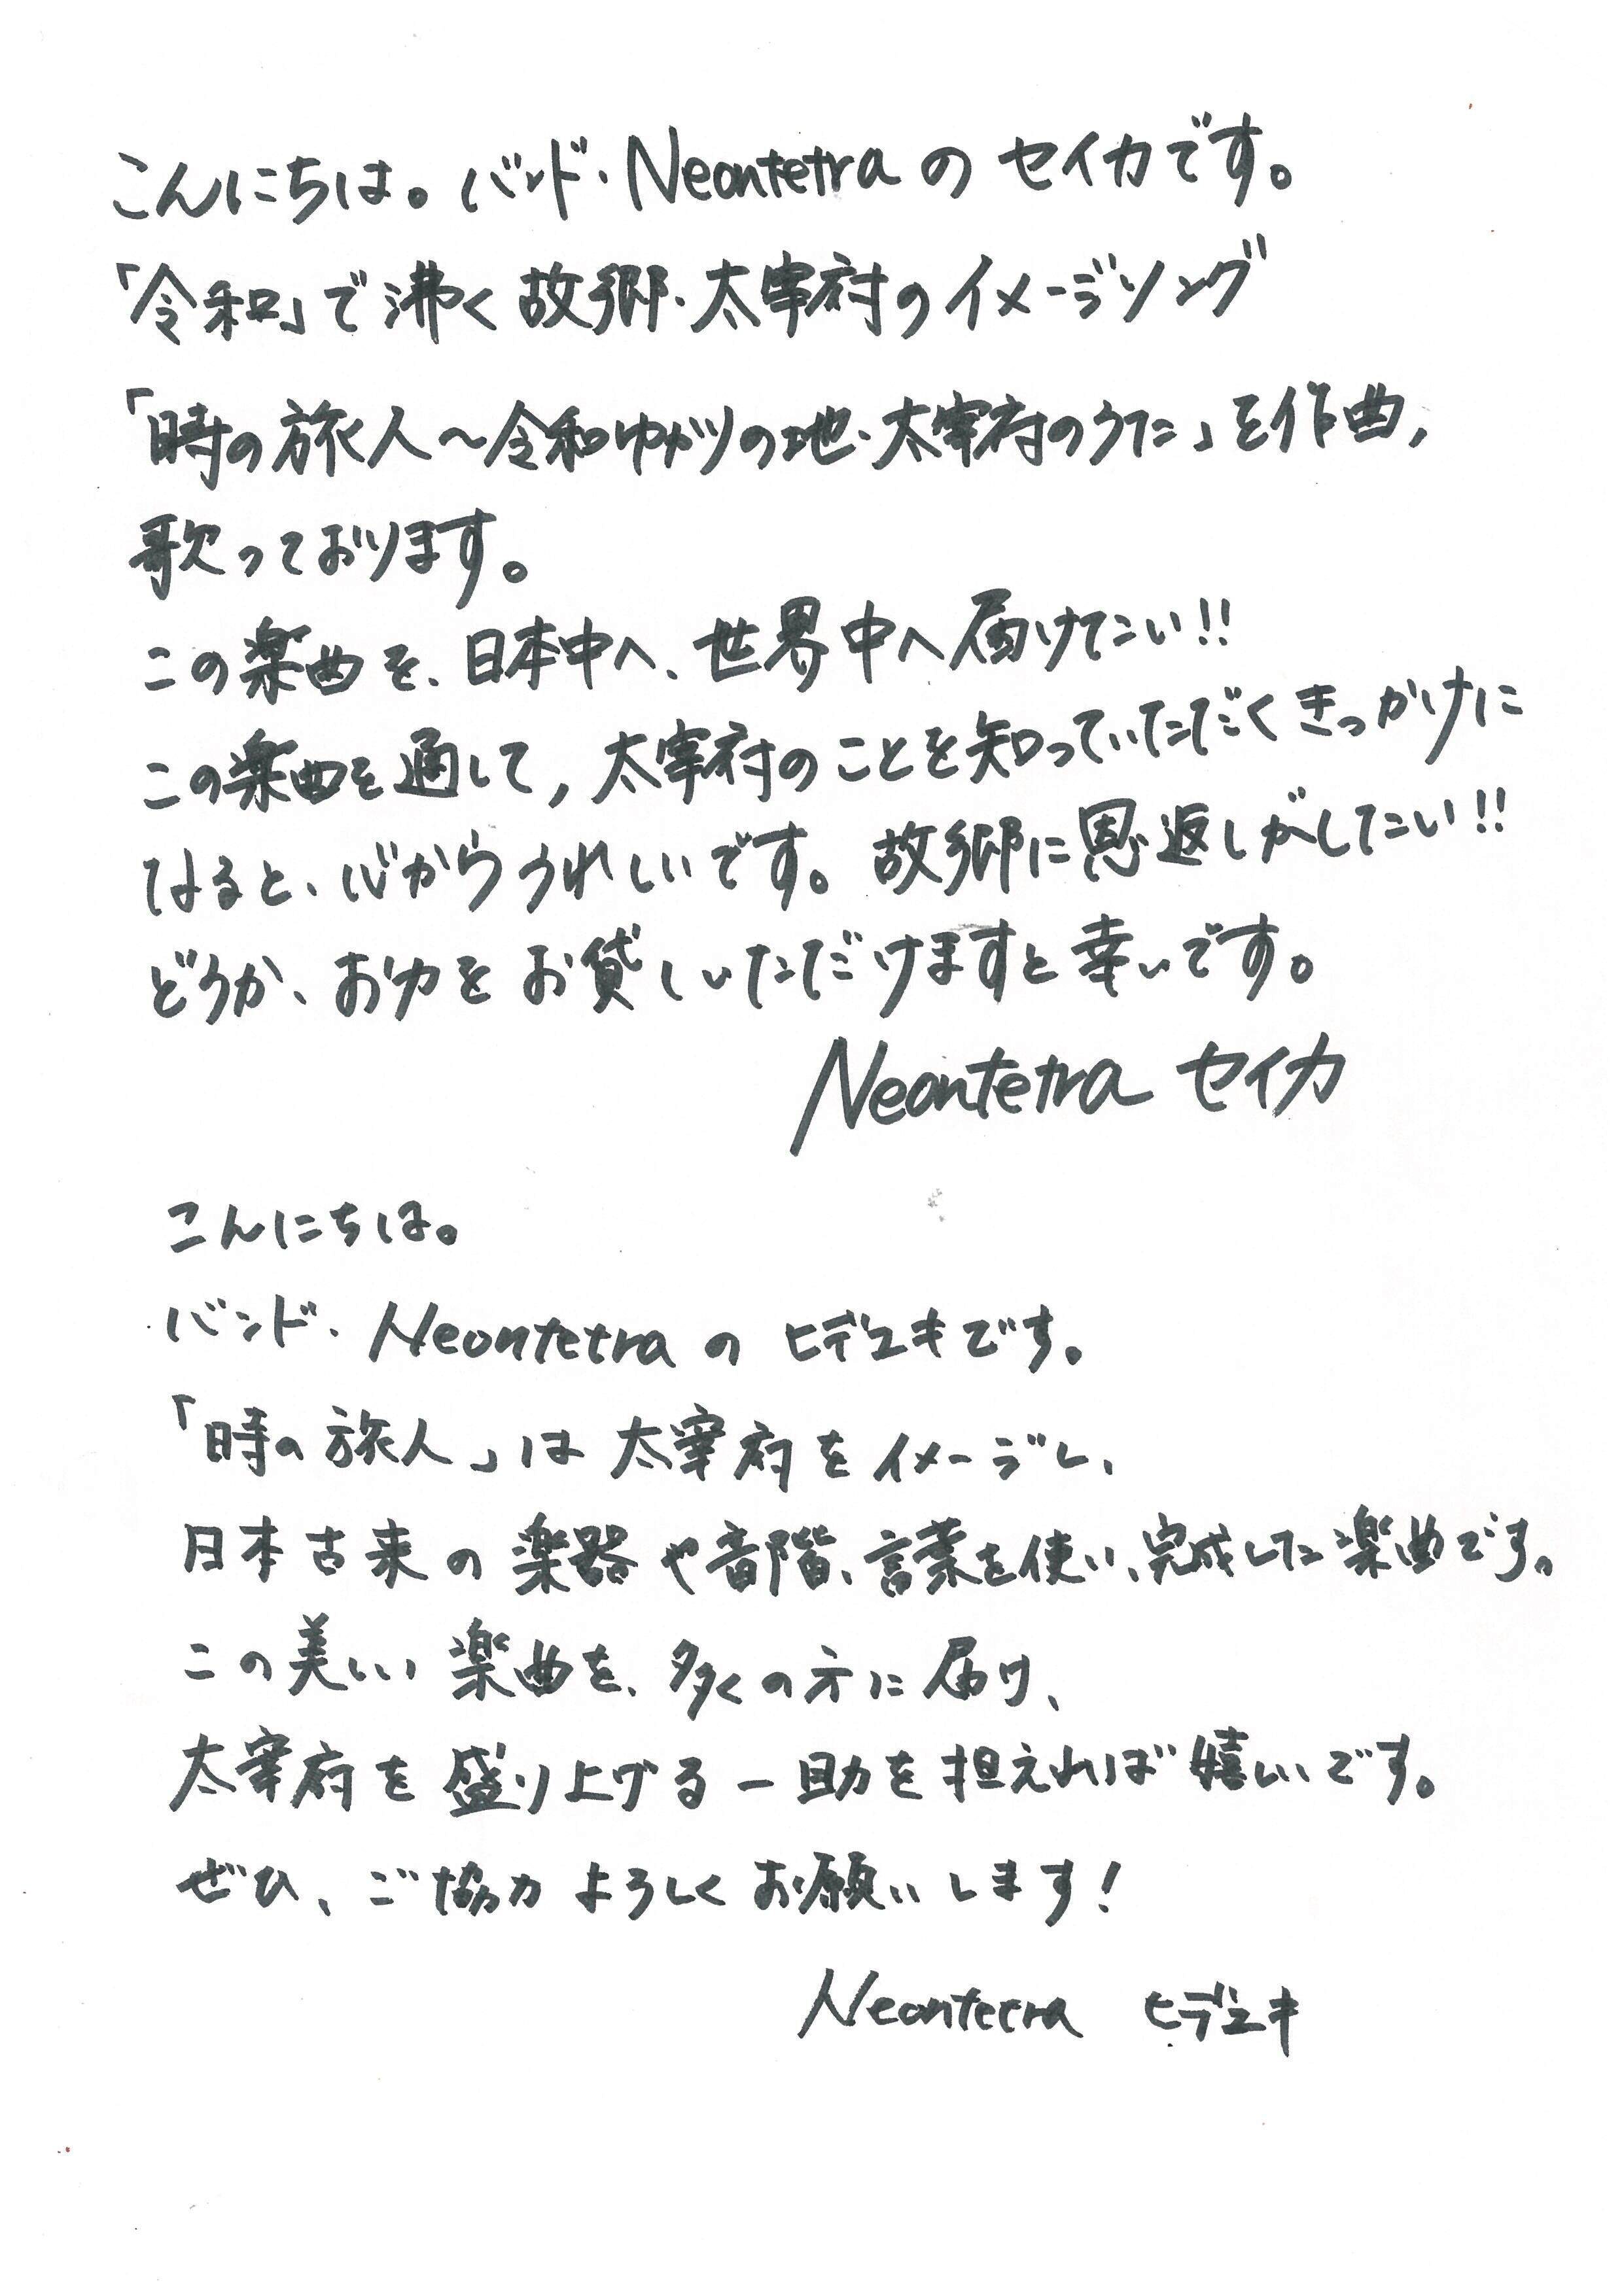 こんにちは。バンド・Neontetraのセイカです。
「令和」で沸く故郷・太宰府のイメージソング
「時の旅人～令和ゆかりの地・太宰府のうた」を作曲,
歌っております。
この楽曲を、日本中へ、世界中へ届けたい!!
この楽曲を通して,太宰府のことを知っていただくきっかけに
なると、心からうれしいです。故郷に恩返しがしたい!!
どうか、お力をお貸しいただけますと幸いです。
Neontetra セイカ
こんにちは。
バンド・Neontetraのヒデユキです。
「時の旅人」は太宰府をイメージし、
日本古来の楽器や音階、言葉を使い、完成した楽曲です。
この美しい楽曲を、多くの方に届け、
太宰府を盛り上げる一助を担えれば嬉しいです。
ぜひ、ご協力よろしくお願いします!
Neontetra ヒデユキ